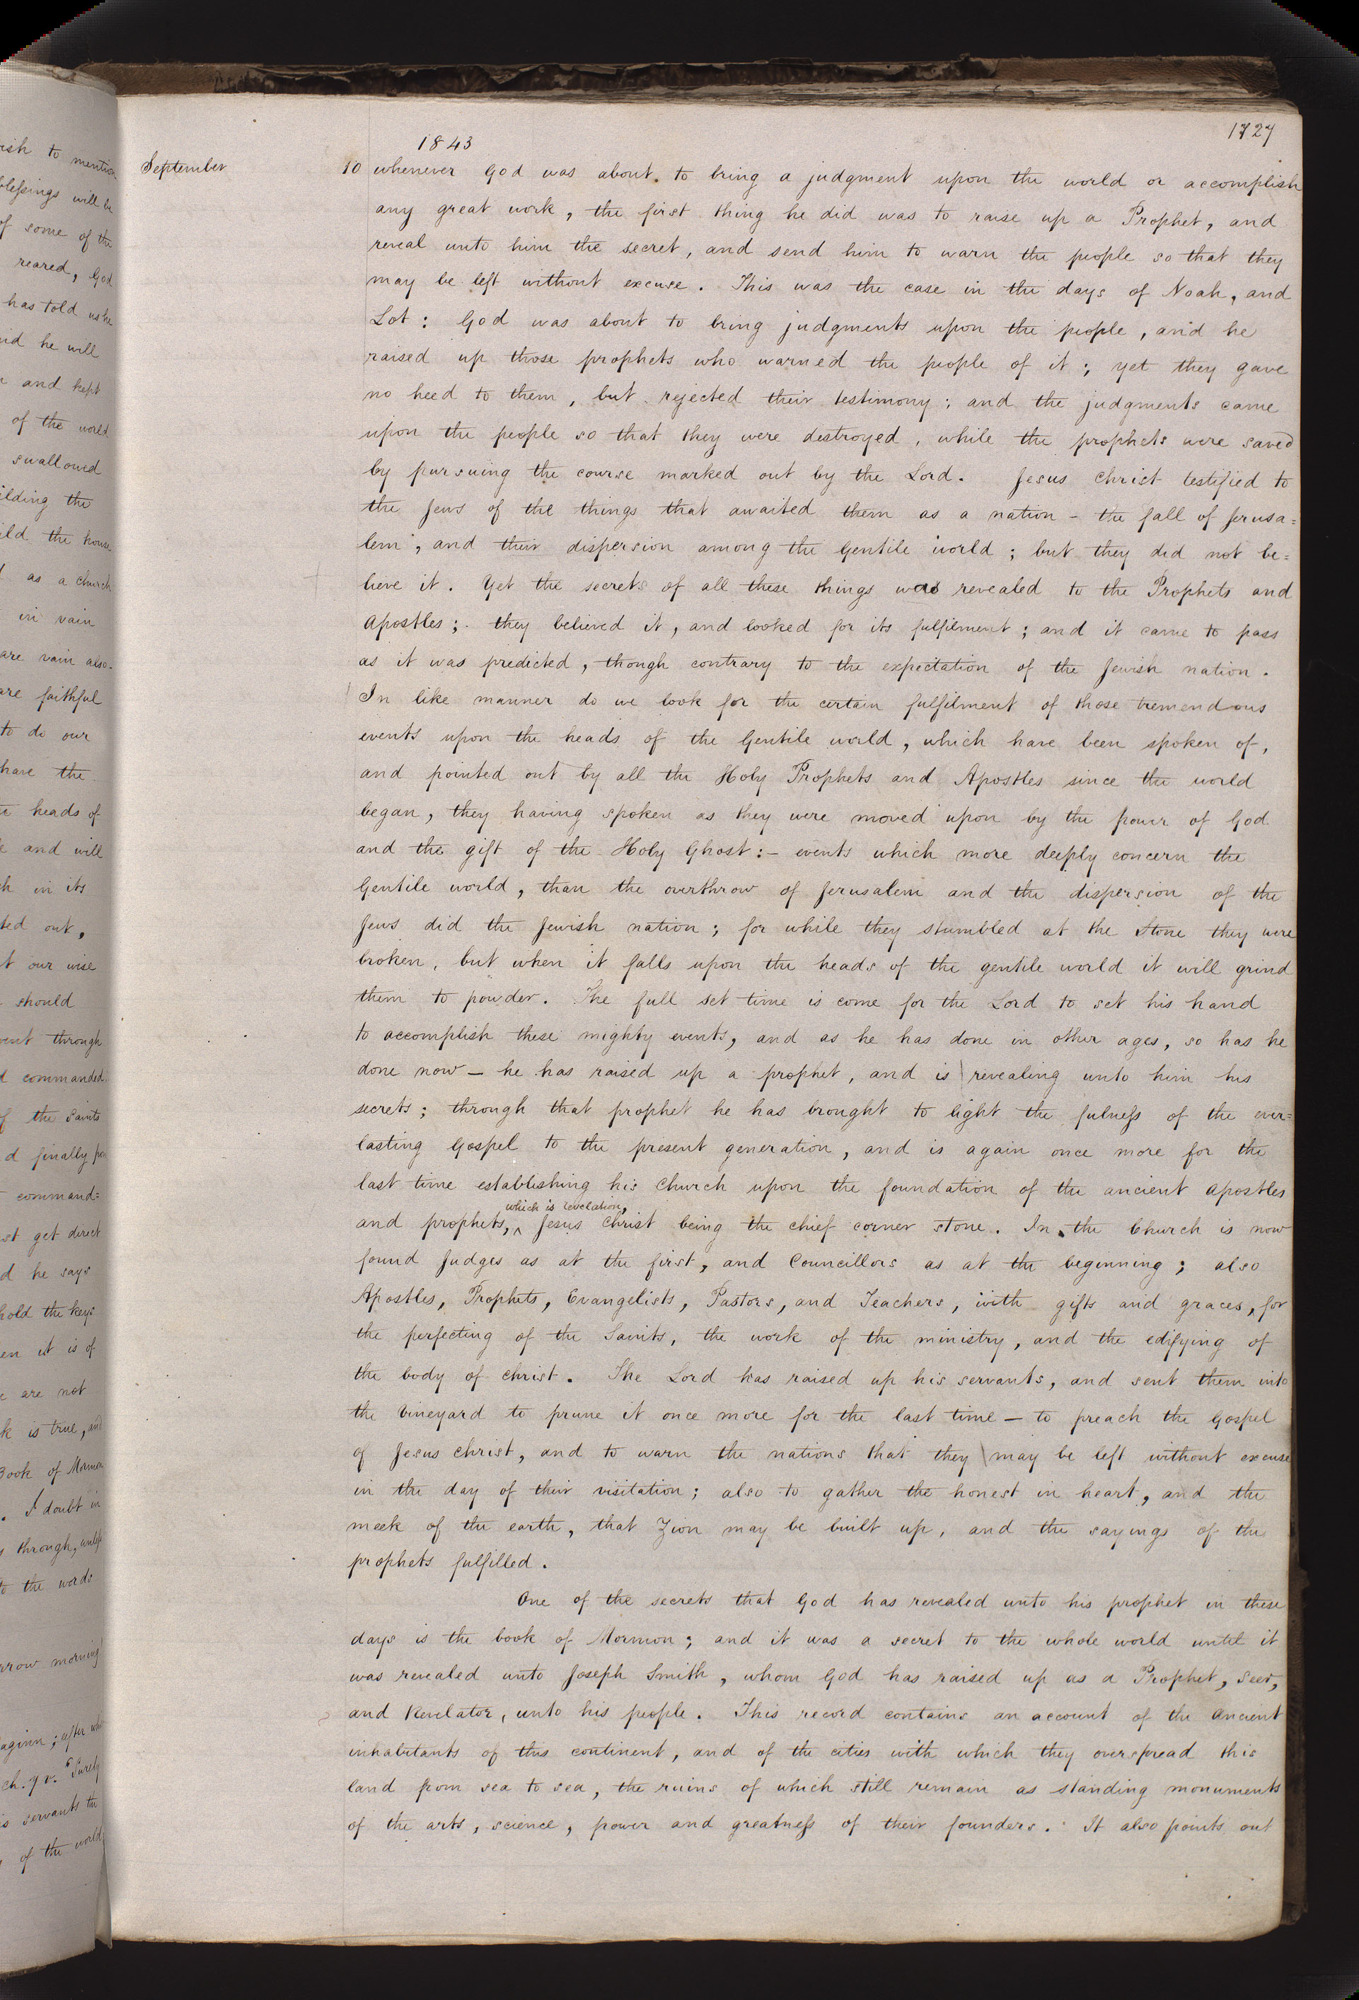 1843
1727
September 10 whenever God was about to bring a judgment upon the world or accomplish
any great work, the first thing he did was to raise up a Prophet, and
reveal unto him the secret, and send him to warn the people so that they
may be left without excuse. This was the case in the days of Noah, and
Lot: God was about to bring judgments upon the people, and he
raised up those prophets who warned the people of it; yet they gave
no heed to them, but rejected their testimony; and the judgments came
upon the people so that they were destroyed, while the prophets were saved
by pursuing the course marked out by the Lord. Jesus Christ testified to
the Jews of the things that awaited them as a nation – the fall of Jerusa=
lem, and their dispersion among the Gentile world; but they did not be=
lieve it. Yet the secrets of all these things was revealed to the Prophets and
Apostles; they believed it, and looked for its fulfilment; and it came to pass
as it was predicted, though contrary to the expectation of the Jewish nation.
In like manner do we look for the certain fulfilment of those tremendous
events upon the heads of the Gentile world, which have been spoken of,
and pointed out by all the Holy Prophets and Apostles since the world
began, they having spoken as they were moved upon by the power of God
and the gift of the Holy Ghost:– events which more deeply concern the
Gentile world, than the overthrow of Jerusalem and the dispersion of the
Jews did the Jewish nation; for while they stumbled at the Stone they were
broken, but when it falls upon the heads of the gentile world it will grind
them to powder. The full set time is come for the Lord to set his hand
to accomplish these mighty events, and as he has done in other ages, so has he
done now – he has raised up a prophet, and is revealing unto him his
secrets; through that prophet he has brought to light the fulness of the ever=
lasting Gospel to the present generation, and is again once more for the
last time establishing his Church upon the foundation of the ancient Apostles
which is revelation,
and prophets, ^ Jesus Christ being the chief corner stone. In the Church is now
found Judges as at the first, and Councillors as at the beginning; also
Apostles, Prophets, Evangelists, Pastors, and Teachers, with gifts and graces, for
the perfecting of the Saints, the work of the ministry, and the edifying of
the body of Christ. The Lord has raised up his servants, and sent them into
the Vineyard to prune it once more for the last time – to preach the Gospel
of Jesus Christ, and to warn the nations that they may be left without excuse
in the day of their visitation; also to gather the honest in heart, and the
meek of the earth, that Zion may be built up, and the sayings of the
prophets fulfilled.
One of the secrets that God has revealed unto his prophet in these
days is the book of Mormon; and it was a secret to the whole world until it
was revealed unto Joseph Smith, whom God has raised up as a Prophet, Seer,
and Revelator, unto his people. This record contains an account of the Ancient
inhabitants of this continent, and of the cities with which they overspread this
land from sea to sea, the ruins of which still remain as standing monuments
of the arts, science, power and greatness of their founders. It also points out